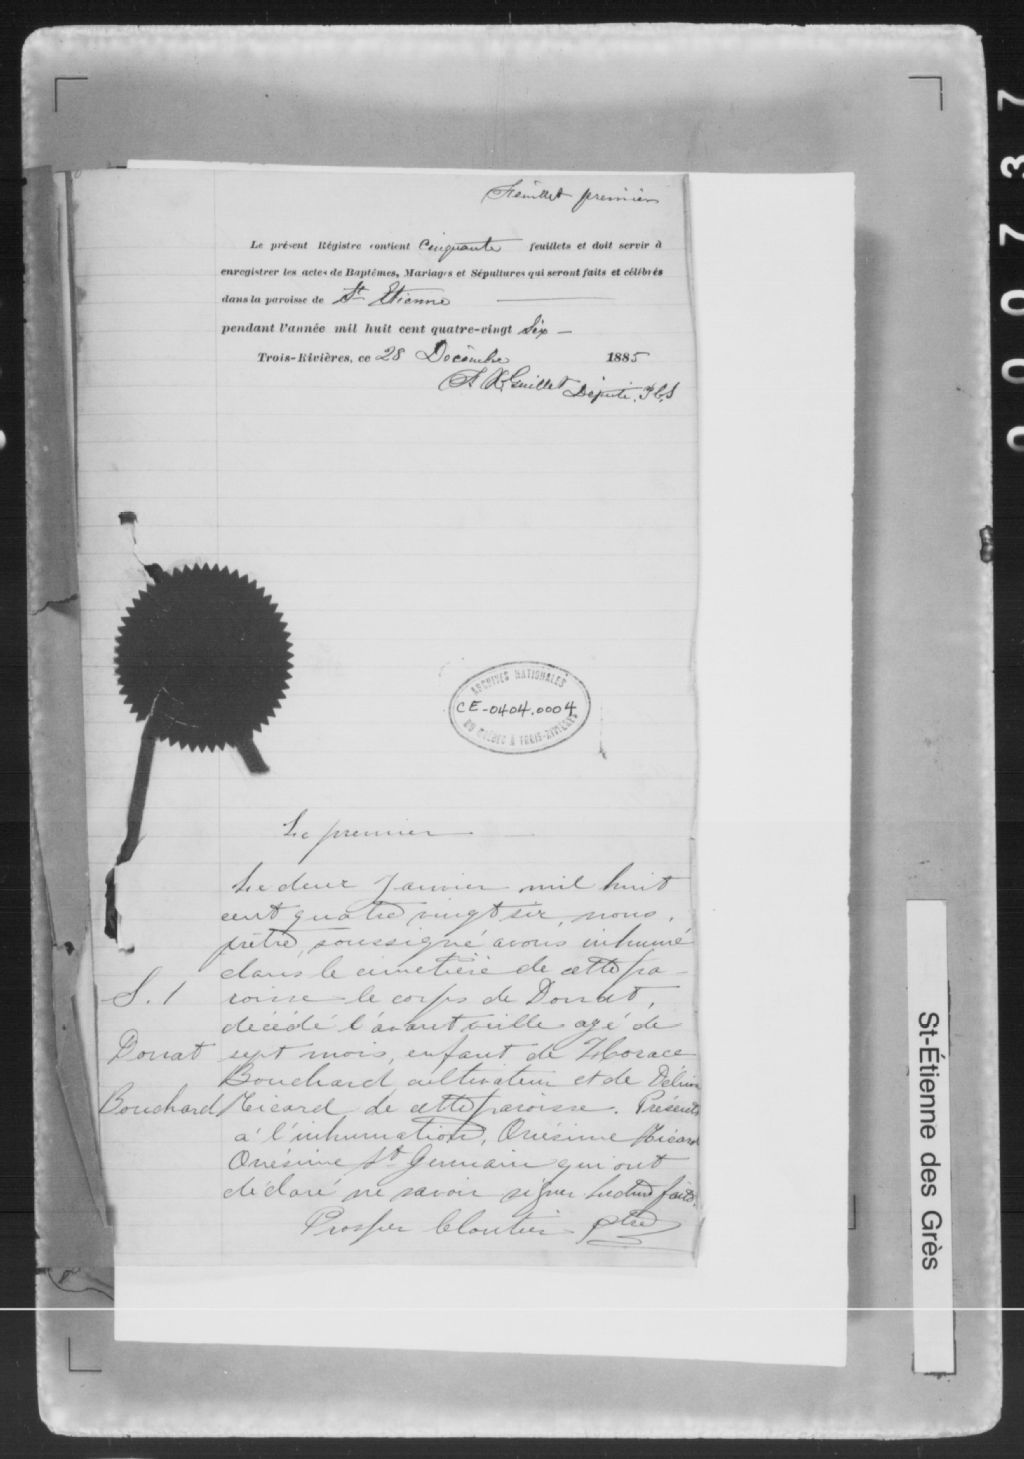 Feuillet premier
Le présent Régistre contient Cinquante feuillets et doit servir à
enregistrer les actes de Baptêmes, Mariages et Sépultures qui seront faits et célébrés
dans la paroisse de St Etienne
pendant l'année mil huit cent quatre-vingt Six —
Trois-Rivières, ce 28 Decembre 1885
F. X. Guillet Député. P.C.S
ARCHIVES NATIONALES
CE-0404.0004
DU QUÉBEC À TROIS-RIVIÈRES
Le premier
Le deux Janvier mil huit
cent quatre vingt six, nous,
prêtre, soussigné avons inhumé
dans le cimetière de cette pa-
S. 1 roisse le corps de Donat,
décédé l'avant veille agé de
Donat sept mois, enfant de Horace
Bouchard cultivateur et de Délim
Bouchard Ricard de cette paroisse. Présents
à l'inhumation, Onésime Ricard
Onésime St Germain qui ont
déclaré ne savoir signer Lecture faite.
Prosper Cloutier ptre
St-Étienne des Grès
000737